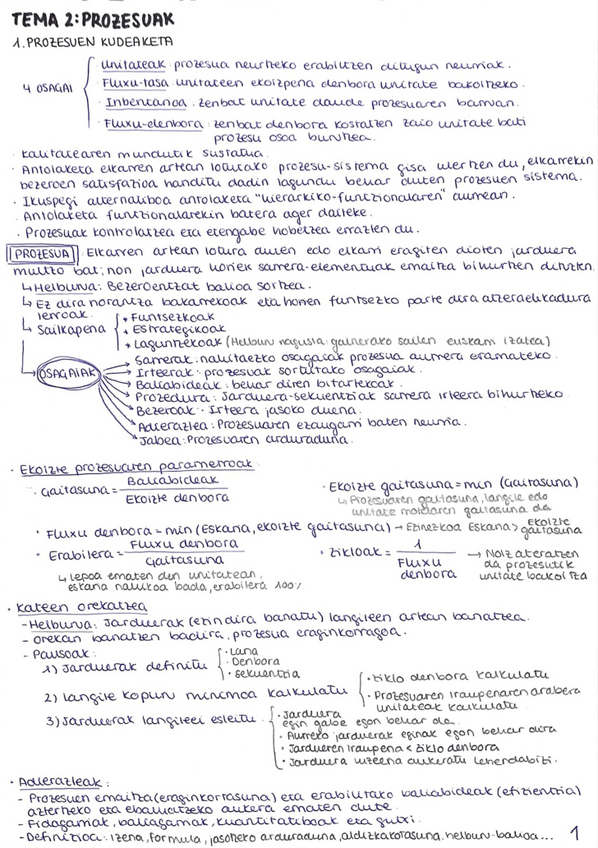 TEMA 2: PROZESUAK
1. PROZESUEN KUDEAKETA
4 OSAGAI
Unitateak: prozesua neurtzeko erabiltzen ditugun neurriak.
Fluxu-tasa: unitateen ekoizpena denbora unitate bakoitzeko.
Inbentarioa: zenbat unitate daude prozesuaren barruan.
Fluxu-denbora: zenbat denbora kostatzen zaio unitate bati
prozesu osoa burutzea.
· Kalitatearen mundutik sustatua.
· Antolaketa elkarren artean lotutako prozesu-sistema gisa ulertzen du, elkarrekin
bezeroen satisfazioa handitu dadin lagundu behar duten prozesuen sistema.
· Ikuspegi alternatiboa antolaketa "hierarkiko-funtzionalaren" aurrean.
· Antolaketa funtzionalarekin batera ager daiteke.
· Prozesuak kontrolatzea eta etengabe hobetzea errazten du.
PROZESUA: Elkarren artean lotura duen edo elkarri eragiten dioten jarduera
multzo bat; non jarduera horiek sarrera-elementuak emaitza bihurtzen dituzten.
↳ Helburua: Bezeroentzat balioa sortzea.
↳ Ez dira norantza bakarrekoak eta honen funtsezko parte dira atzeraelikadura
lerroak.
↳ Sailkapena
· Funtsezkoak
· Estrategikoak
· Laguntzekoak (Helburu nagusia: gainerako sailen euskarri izatea)
OSAGAIAK
Sarrerak: nahitaezko osagaiak prozesua aurrera eramateko.
Irteerak: prozesuak sortutako osagaiak.
Baliabideak: behar diren bitartekoak.
Prozedura: Jarduera-sekuentziak sarrera irteera bihurtzeko
Bezeroak: Irteera jasoko duena.
Adierazlea: Prozesuaren ezaugarri baten neurria.
Jabea: Prozesuaren arduraduna.
· Ekoizte prozesuaren parametroak:
· Gaitasuna = Baliabideak / Ekoizte denbora
· Ekoizte gaitasuna = min (Gaitasuna)
↳ Prozesuaren gaitasuna, langile edo
unitate motelaren gaitasuna da
· Fluxu denbora = min (Eskaria, ekoizte gaitasuna) → Ezinezkoa Eskaria > Ekoizte gaitasuna
· Erabilera = Fluxu denbora / Gaitasuna
↳ Lepoa ematen den unitatean,
eskaria nahikoa bada, erabilera 100%
· Zikloak = 1 / Fluxu denbora → Noiz ateratzen
da prozesutik
unitate bakoitza
· Kateen orekatzea
- Helburua: Jarduerak (ezin dira banatu) langileen artean banatzea.
- Orekan banatzen badira, prozesua eraginkorragoa.
- Pausoak:
1) Jarduerak definitu
· Lana
· Denbora
· Sekuentzia
2) Langile kopuru minimoa kalkulatu
· Ziklo denbora kalkulatu
· Prozesuaren iraupenaren arabera
unitateak kalkulatu
3) Jarduerak langileei esleitu
· Jarduera
egin gabe egon behar da.
· Aurreko jarduerak eginak egon behar dira
· Jardueren iraupena < ziklo denbora
· Jarduera luzeena aukeratu lehendabizi.
· Adierazleak:
- Prozesuen emaitza (eraginkortasuna) eta erabilitako baliabideak (efizientzia)
aztertzeko eta ebaluatzeko aukera ematen dute.
- Fidagarriak, baliagarriak, kuantitatiboak eta gutxi.
- Definizioa: izena, formula, jasotzeko arduraduna, aldizkakotasuna, helburu-balioa... 1